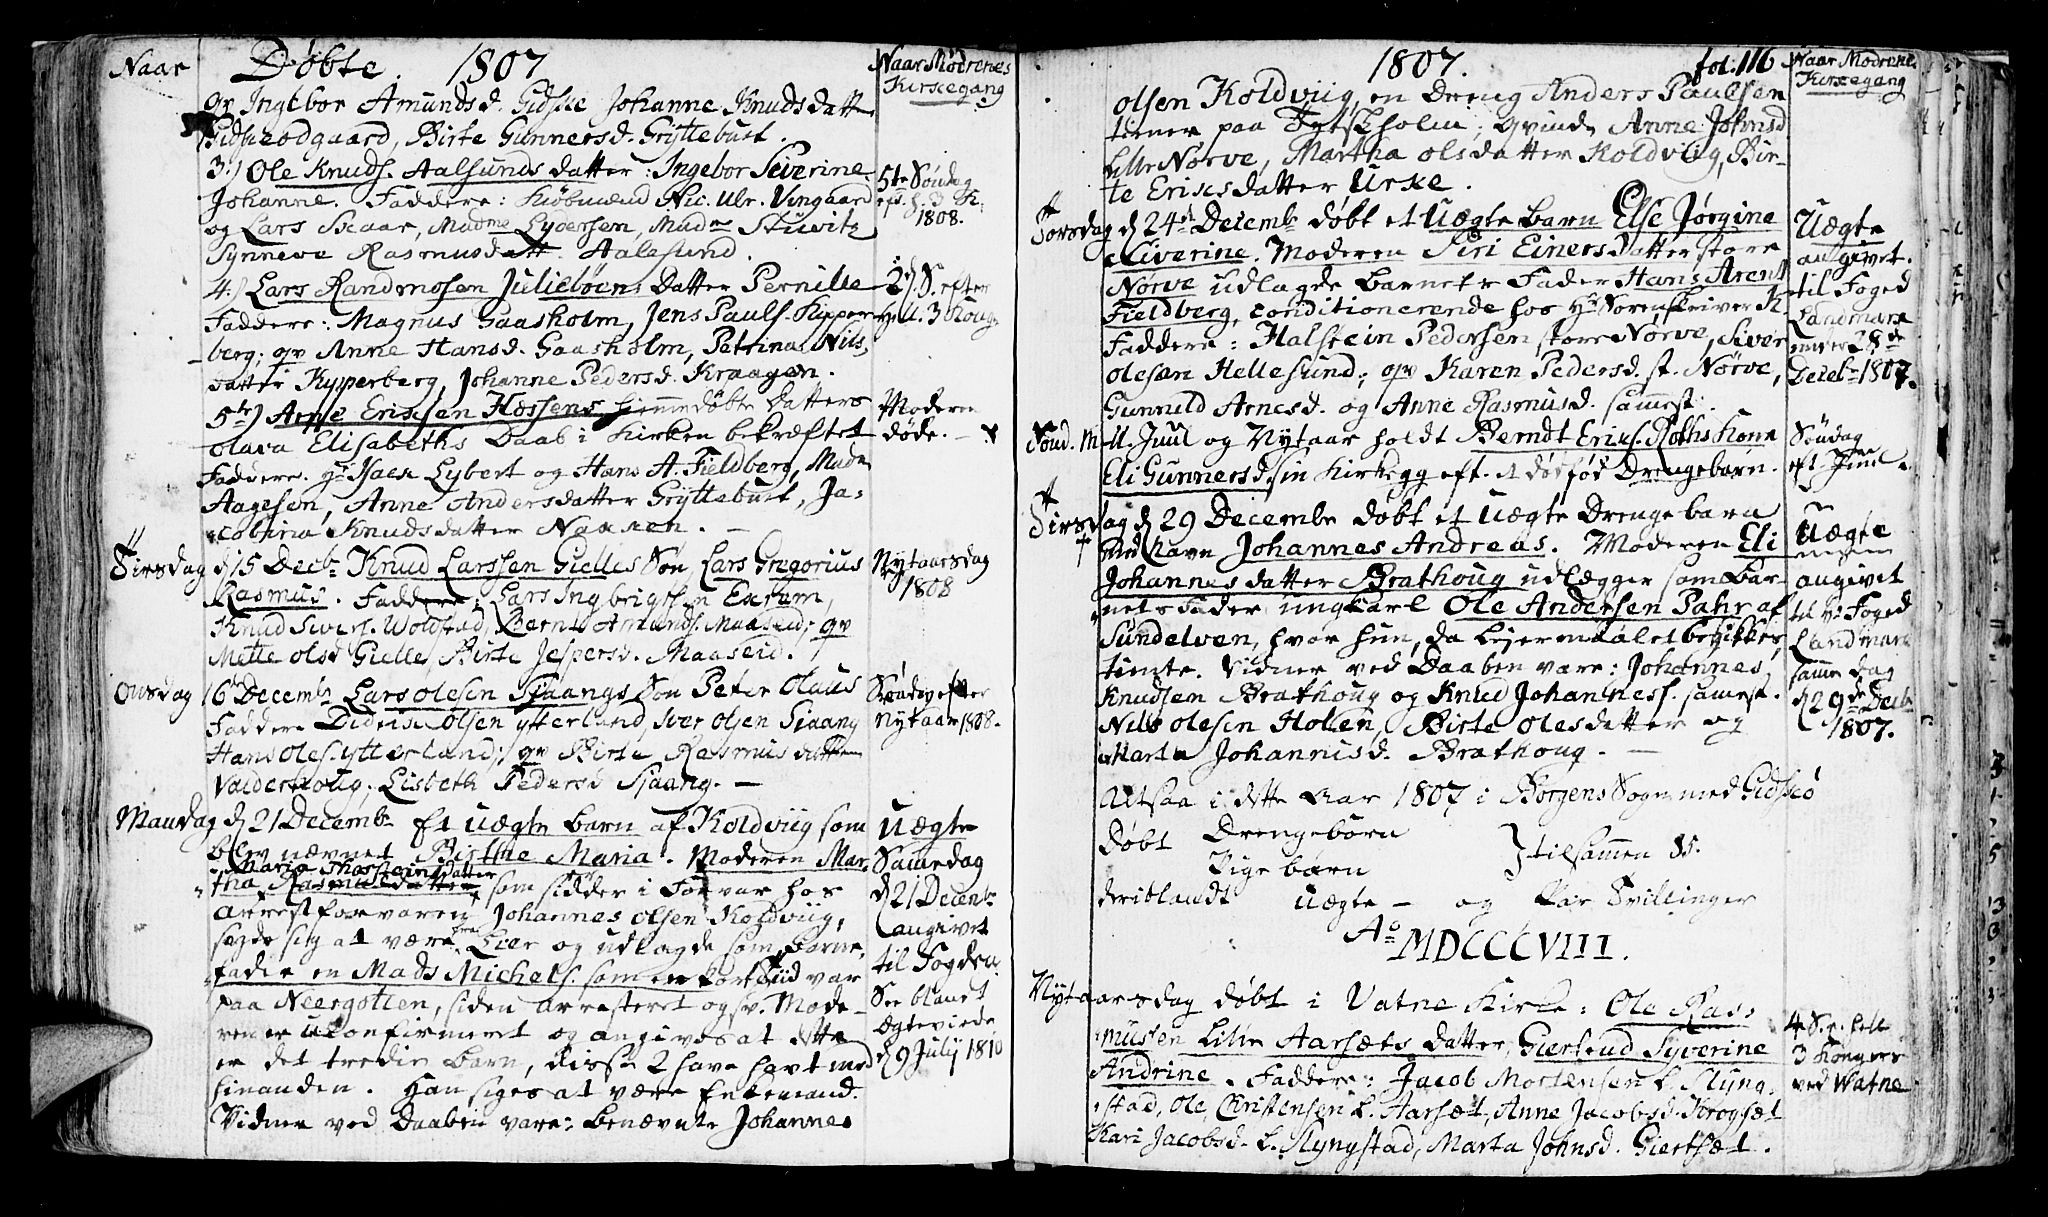 Naar Døbte. 1807 Naar Mødrenes
Kirkegang
qv Ingebor Amundsd. Gidske Johanne Knudsdatter
Gidskeodgaard, Birte Gunnersd. Gryttebust.
3.) Ole Knuds. Aalsunds datter: Ingebor Siverine
Johanne. Faddere: Kiøbmænd Nic. Ulr. Vingaard
og Lars Skaar, Madme Lydersen, Madm Stuvitz
Synneve Rasmusdatt. Aalesund.
5te Søndag
eft. h. 3 K.
1808.
4.) Lars Randmosen Julieboens Datter Pernille
Faddere: Magnus Gaasholm, Jens Pauls. Kypper-
berg; qv Anne Hansd. Gaasholm, Petrina Nils-
datter Kypperberg, Johanne Pedersd. Kraagen.
2d. S. efter
hell. 3 Kong.
5te) Arne Eriksen Hessens hiemmedøbte Datters
Olava Elisabeths Daab i Kirken bekræftet
Faddere. Hr Isaek Lybert og Hans A. Fieldberg, Madm
Aagesen, Anne Andersdatter Gryttebust, Ja-
cobina Knudsdatter Naaren. —
Moderen
døde. —
Tirsdag d 15 Decbr Knud Larssen Gielles Søn Lars Gregorius
Rasmus. Faddere: Lars Ingbrigtsen Exkum,
Knud Sivers. Woldstad, Bernt Amunds. Maaseid; qv
Mette olsd Gielle, Birte Jespersd. Maaseid.
Nytaarsdag
1808
Onsdag 16 Decembr Lars olesen Sjaangs Søn Peter Olaus
Faddere Didrik Olsen ytterland Siver olsen Siaang
Hans Oles. ytterland; qv Birte Rasmusdatter
Valderhoug, Lisbeth Pedersd Sjaang. —
Søndag efter
Nytaar 1808.
Mandag d 21 Decembr Et uægte barn af Koldviig som
blev nævnet Birthe Maria. Moderen Mar-
Maria Thorsteinsdatter
tha Rasmusdatter som sidder i Forvar hos
Arrestforvaren Johannes Olsen Koldviig,
sagde sig at være fra Lier og udlagde som barne-
fader en Mads Michels. som en kort tiid var
paa Neergotten, siden arresteret ogsv. Mode-
ren er ukonfirmeret og angives at dette
er det tredie barn, disse 2 have havt med
hinanden. Han siges at være Enkemand.
Vidner ved Daaben vare: benævnte Johannes
Uægte
Samedag
d 21 Decembr
angivet
til Fogden
See blandt
Ægteviede
d 9 July 1810
1807. fol. 116 Naar Mødrenes
Kirkegang
Olsen Koldviig, en Dreng Anders Paulsen
tiener paa Tytskholm; qvinder Anne Johnsd
lille Nørve, Martha olsdatter Koldviig, Bir-
te Eriksdatter Urke.
Torsdag d 24de Decembr døbt et Uægte barn Else Jørgine
Siverine. Moderen Siri Einersdatter store
Nørve udlagde Barnets Fader Hans Arent
Fieldberg, conditionerende hos Hr Sorenskriver K.
Faddere: Halstein Pedersen store Nørve, Siver
olesen Hellesund; qv Karen Pedersd. st. Nørve,
Gunnild Arnesd. og Anne Rasmusd. sammest.
Uægte
angivet
til Foged
Landmark
28de
Decbr 1807.
Sønd. M ll. Juul og Nytaar holdt Berndt Eriks. Roths Kone
Eli Gunnersd. sin Kirkegg eft. et dødfød Drengebarn.
Søndag
eft. Juul.
Tirsdag d 29 Decembr døbt et Uægte Drengebarn
med Navn Johannes Andreas. Moderen Eli
Johannesdatter Brathoug udlægger som Bar-
nets Fader ungkarl Ole Andersen Pahr af
Sundelven, hvor hun, da Leiermaalet begikkes,
tiente. Vidner ved Daaben vare: Johannes
Knudsen Brathoug og Knud Johanness. samest.
Nils olesen Holen, Birte Olesdatter og
Marta Johannesd. Brathoug. —
Uægte
angivet
til Hr Foged
Landmark
samme Dag
d 29de Decbr
1807.
Altsaa i dette Aar 1807 i Borgens Sogn med Gidskø
Døbt Drengebørn
Pigebørn
} tilsammen 85.
deriblandt uægte — og Par Tvillinger
Ao MDCCCVIII.
Nytaarsdag døbt i Vatne Kirke: Ole Ras-
mussen Lille Aarsæts Datter, Gierteud Syverine
Andrine. Faddere: Jacob Mortensen L. Slyng-
stad, Ole Christensen L. Aarsæt, Anne Jacobsd. Krogsæt
Kari Jacobsd. L. Slyngstad, Marta Johnsd. Giertsæt.
4 S. e. hell
3 Konger
ved Watne